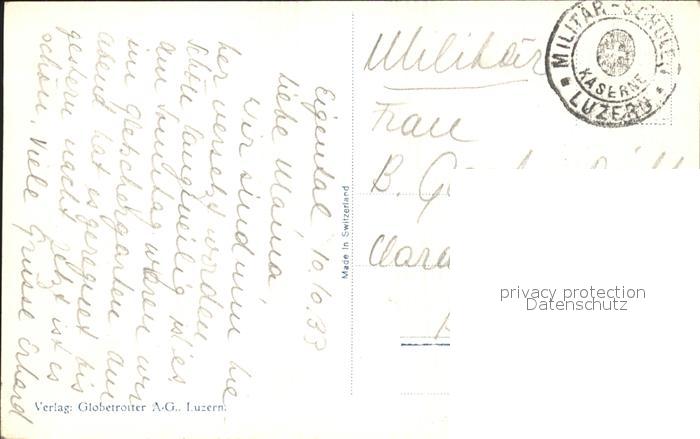 Eigental 10.10.33
Liebe Mama
Wir sind nun hie
her versetzt worden
schön langweilig ist es
am Sonntag waren wir
im Gletschergarten am
abend hat es geregnet bis
gestern nacht jetzt ist es
schön. Viele Grüsse Erhard
Militär
Frau
B.
Clara
MILITÄR-SCHULEN
KASERNE
LUZERN
Made in Switzerland
Verlag: Globetrotter A-G., Luzern.
privacy protection
Datenschutz